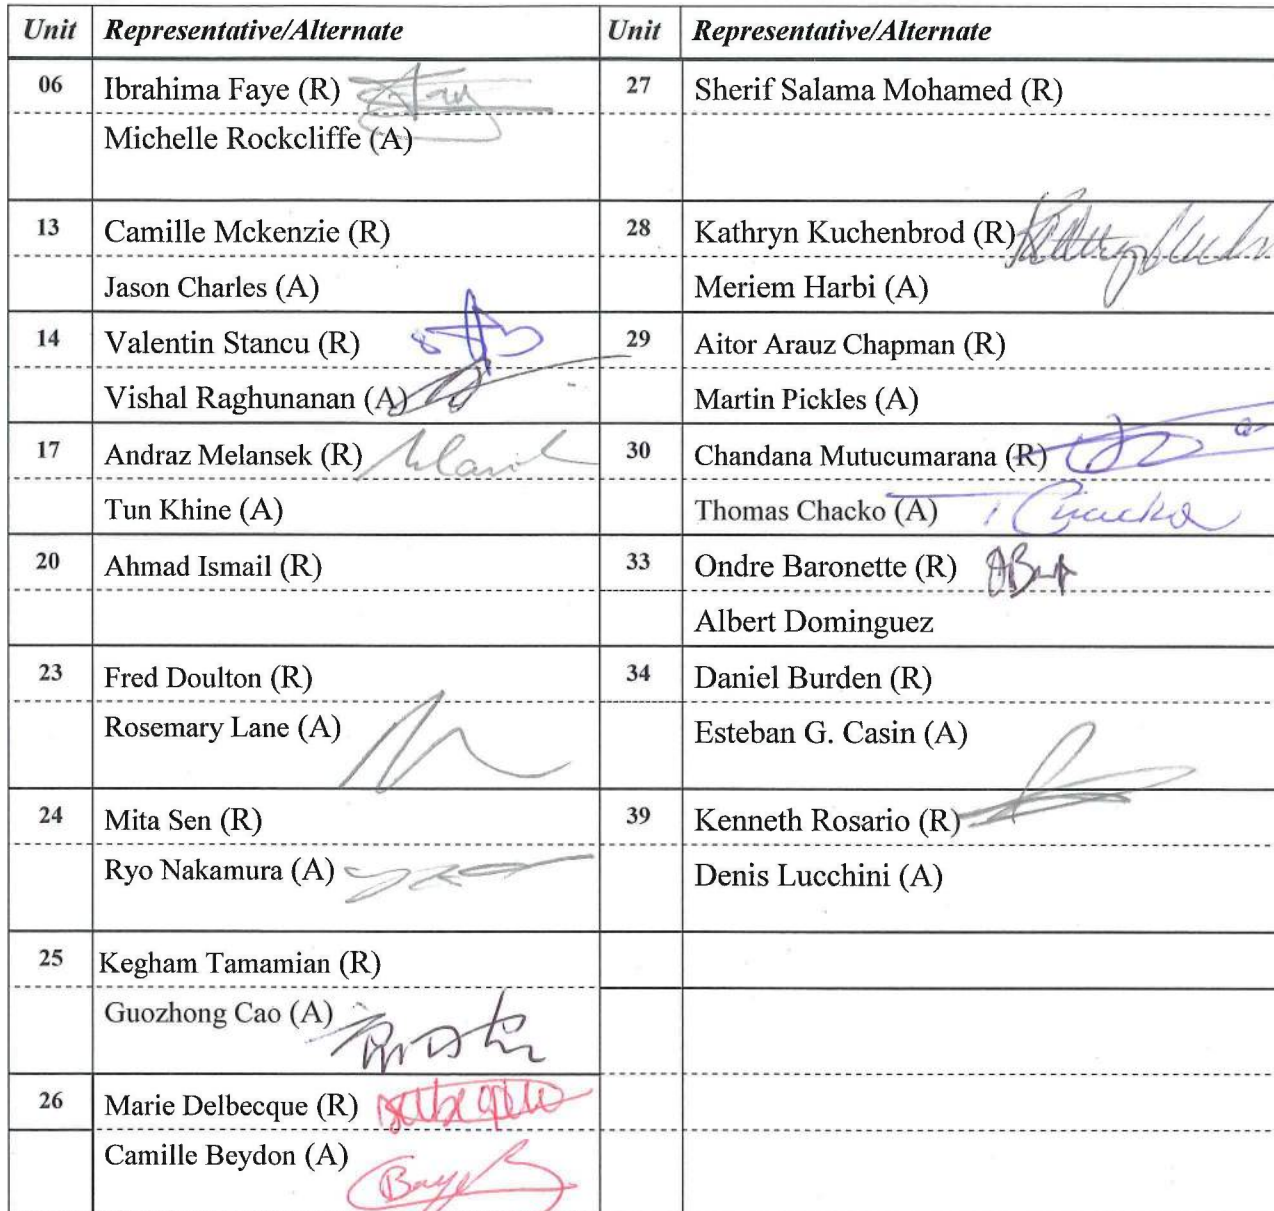 Unit Representative/Alternate Unit Representative/Alternate
06 Ibrahima Faye (R) 27 Sherif Salama Mohamed (R)
Michelle Rockcliffe (A)
13 Camille Mckenzie (R) 28 Kathryn Kuchenbrod (R)
Jason Charles (A) Meriem Harbi (A)
14 Valentin Stancu (R) 29 Aitor Arauz Chapman (R)
Vishal Raghunanan (A) Martin Pickles (A)
17 Andraz Melansek (R) 30 Chandana Mutucumarana (R)
Tun Khine (A) Thomas Chacko (A) T Chacko
20 Ahmad Ismail (R) 33 Ondre Baronette (R)
Albert Dominguez
23 Fred Doulton (R) 34 Daniel Burden (R)
Rosemary Lane (A) Esteban G. Casin (A)
24 Mita Sen (R) 39 Kenneth Rosario (R)
Ryo Nakamura (A) Denis Lucchini (A)
25 Kegham Tamamian (R)
Guozhong Cao (A)
26 Marie Delbecque (R)
Camille Beydon (A)